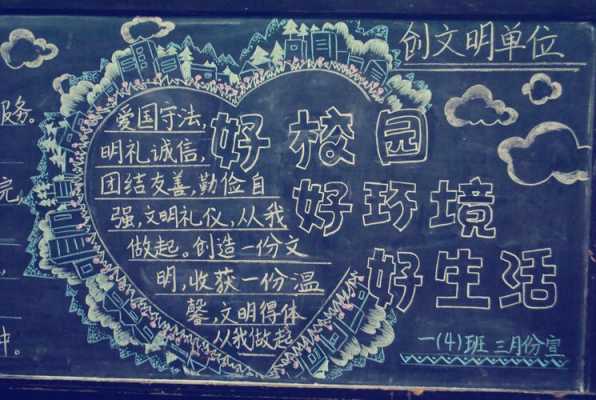 服。
元,
件。
创文明单位
爱国守法,
明礼诚信,
团结友善,勤俭自
强,文明礼仪,从我
做起。创造一份文
明,收获一份温
馨,文明得体
从我做起
好校园
好环境
好生活
一(4)班 三月份宣